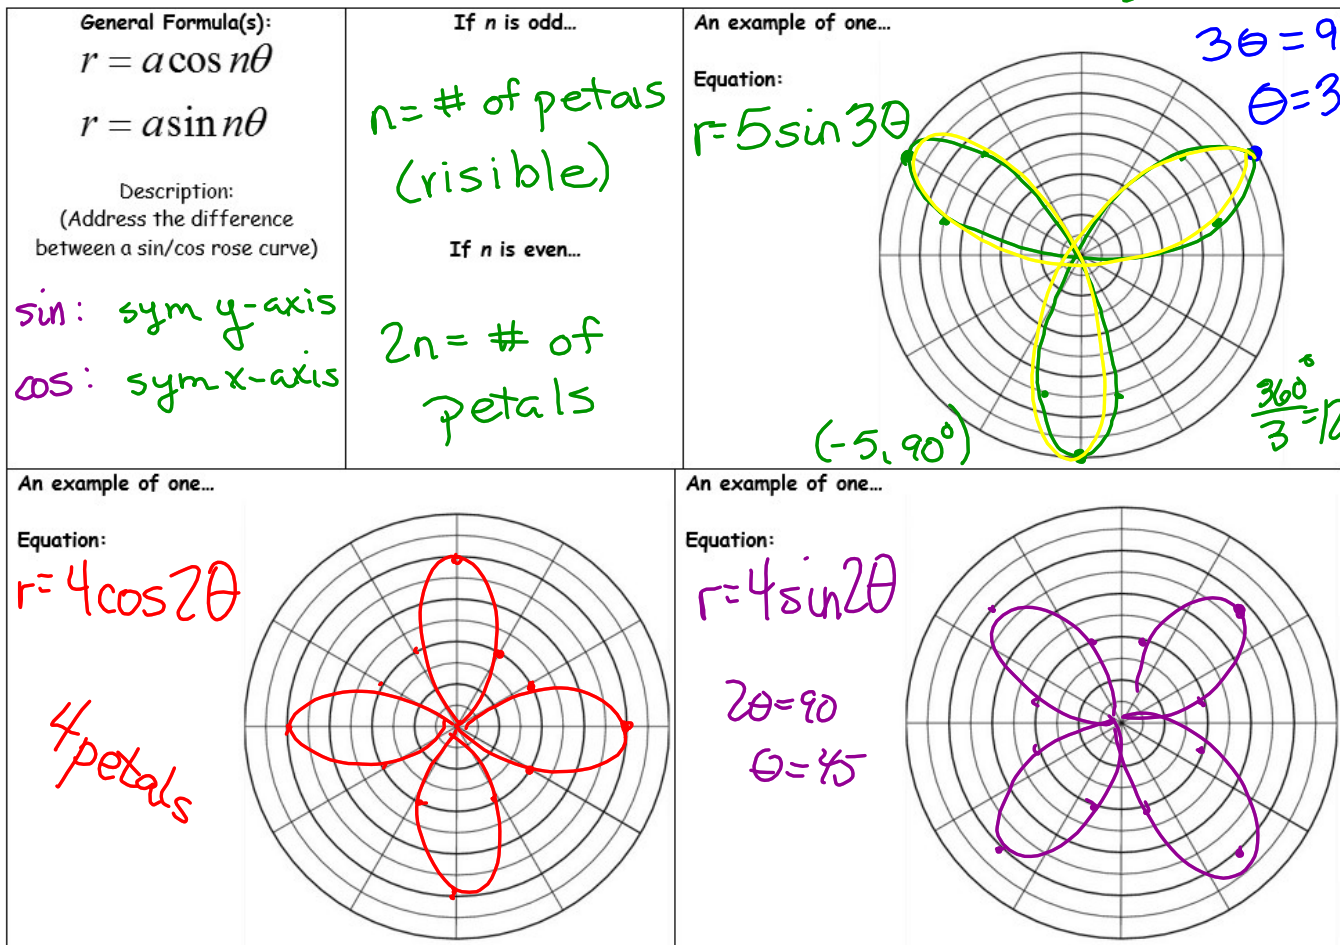 General Formula(s):
r = a cos nθ
r = a sin nθ
Description:
(Address the difference
between a sin/cos rose curve)
sin: sym y-axis
cos: sym x-axis
If n is odd...
n = # of petals
(risible)
If n is even...
2n = # of
petals
An example of one...
Equation:
r=5sin3θ
3θ = 9
θ = 3
(-5, 90°)
360°/3 = 12
An example of one...
Equation:
r=4cos2θ
4 petals
An example of one...
Equation:
r=4sin2θ
2θ=90
θ=45